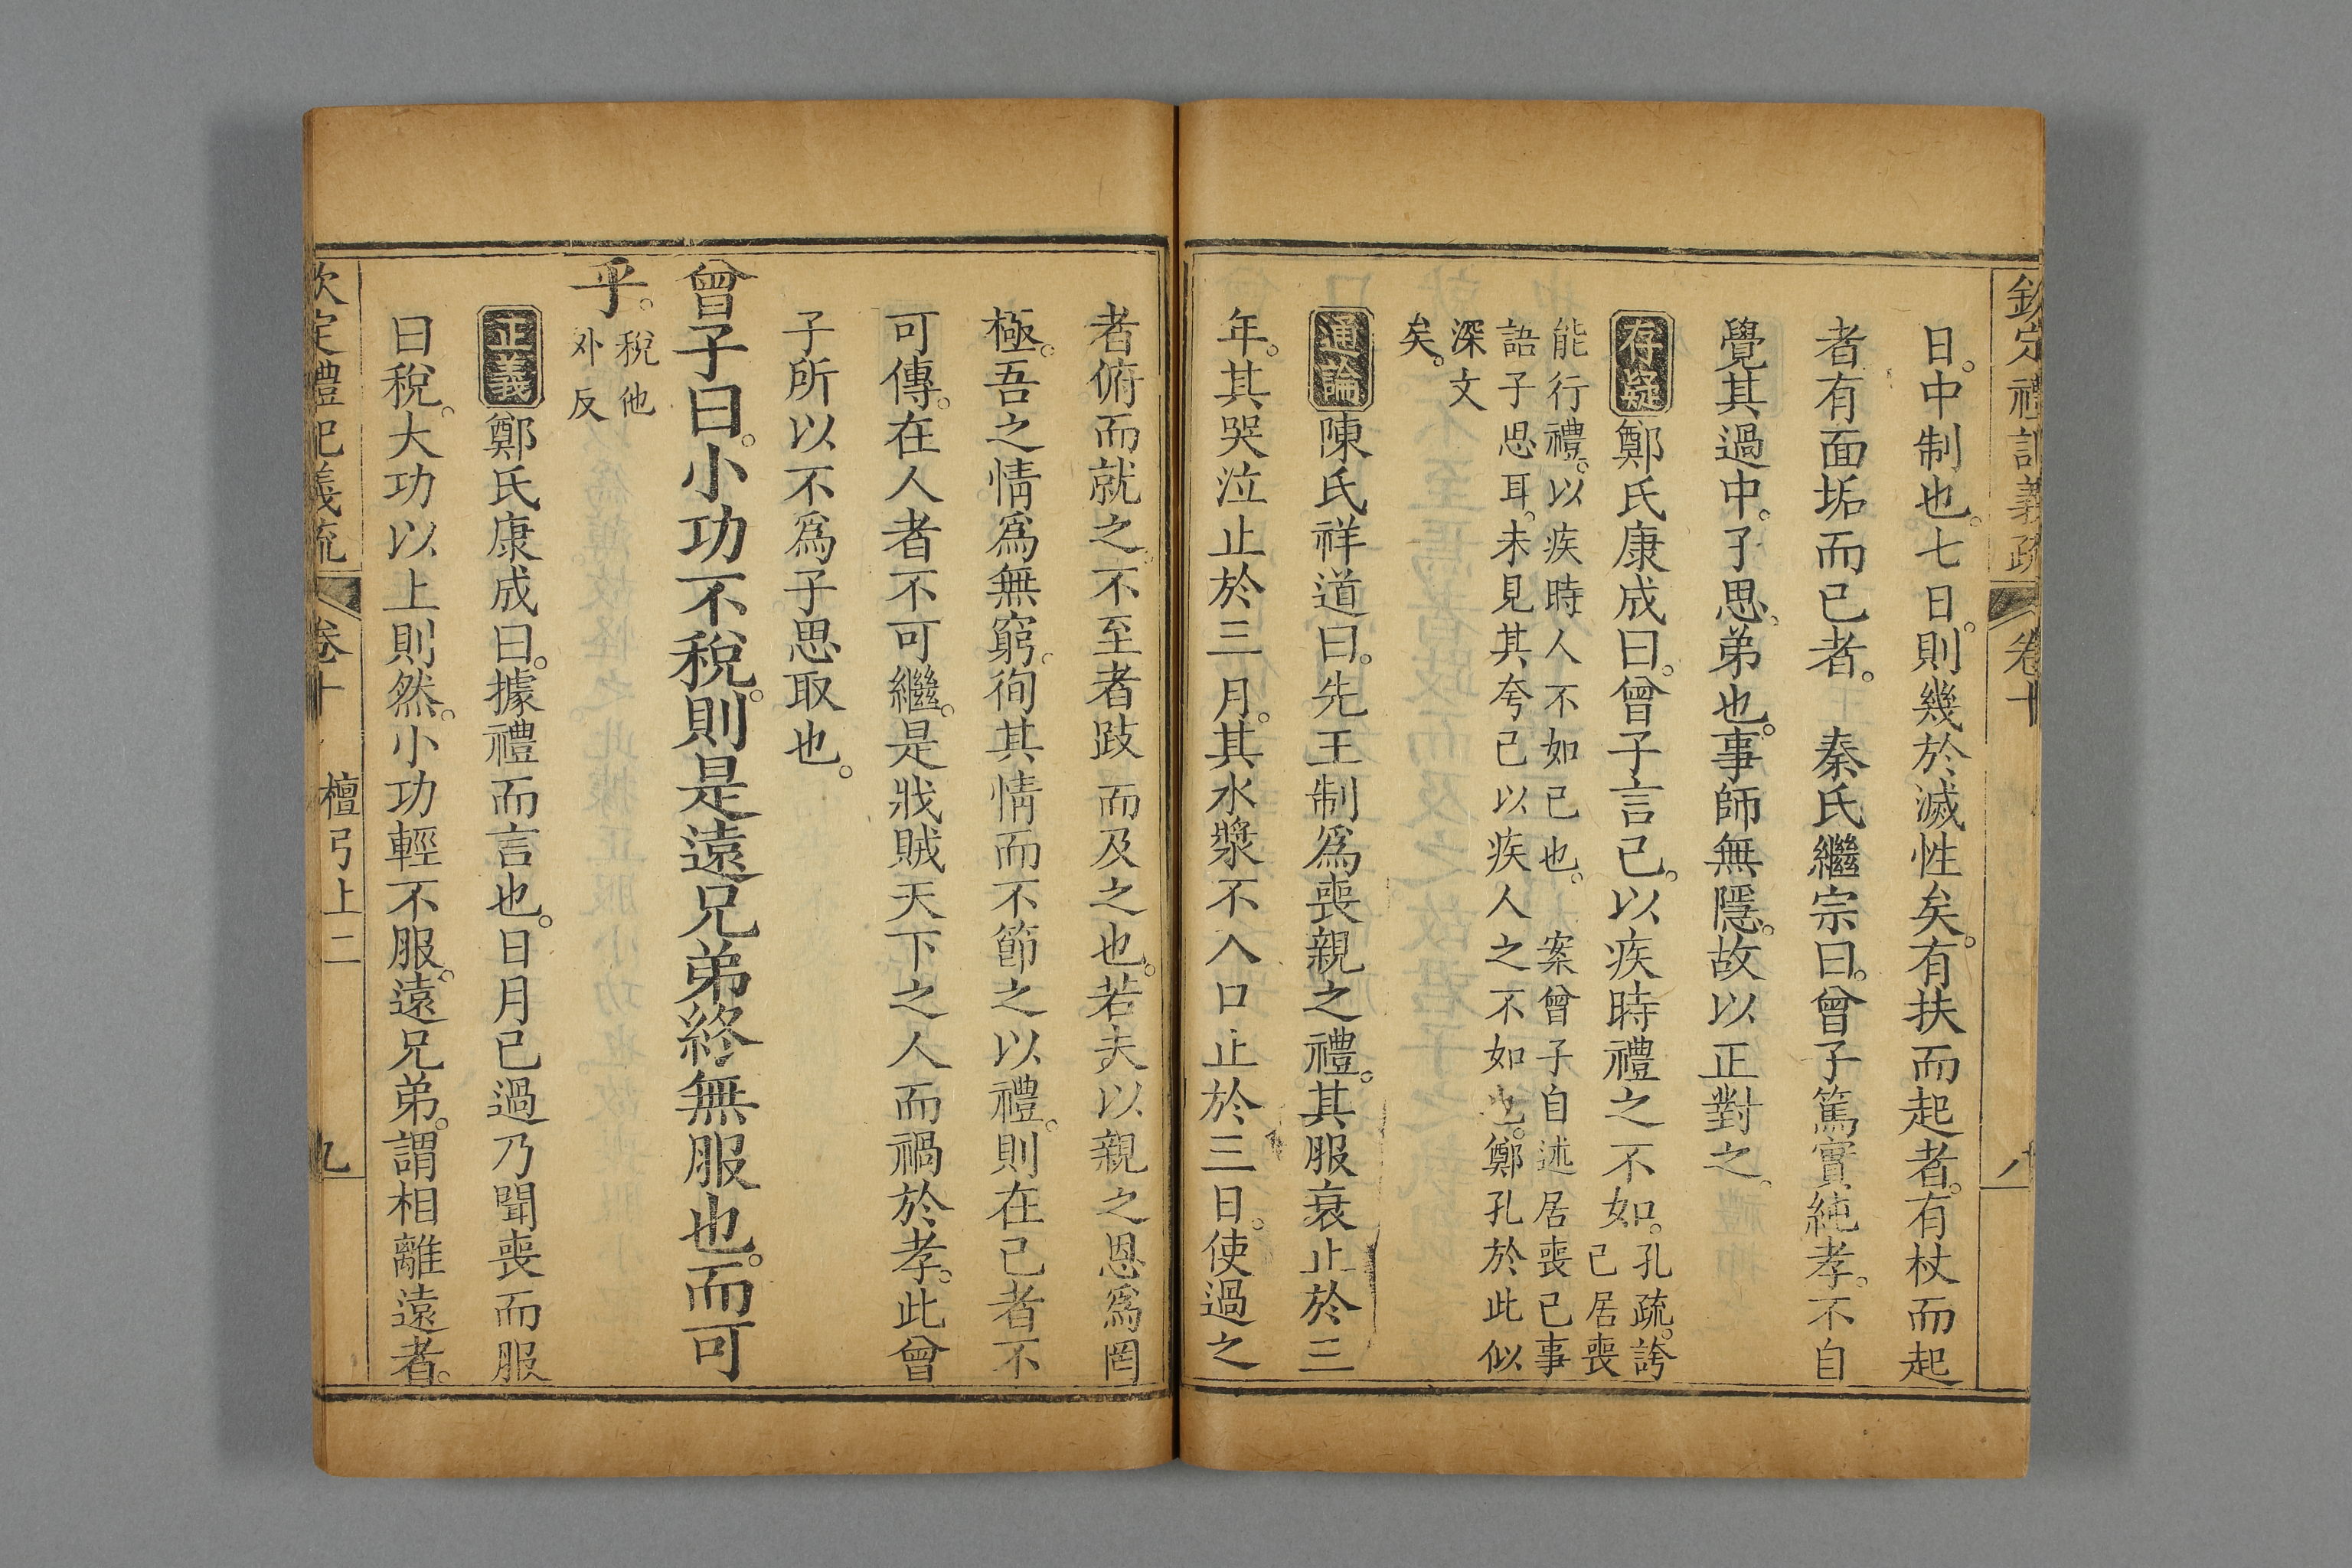 欽定禮記義疏 卷十
日。中制也。七日。則幾於滅性矣。有扶而起者。有杖而起
者有面垢而已者。 秦氏繼宗曰。曾子篤實純孝。不自
覺其過中。子思弟也。事師無隱。故以正對之。
存疑 鄭氏康成曰。曾子言己。以疾時禮之不如。孔疏。誇己居喪
能行禮。以疾時人不如已也。 案曾子自述居喪已事
語子思耳。未見其夸已以疾人之不如也。鄭孔於此似
深文
矣。
通論 陳氏祥道曰。先王制爲喪親之禮。其服衰止於三
年。其哭泣止於三月。其水漿不入口止於三日。使過之
者俯而就之。不至者跂而及之也。若夫以親之恩爲罔
極。吾之情爲無窮。徇其情而不節之以禮。則在己者不
可傳。在人者不可繼。是戕賊天下之人而禍於孝。此曾
子所以不爲子思取也。
曾子曰。小功不稅。則是遠兄弟終無服也。而可
乎。稅他外反
正義 鄭氏康成曰。據禮而言也。日月已過乃聞喪而服
曰稅。大功以上則然。小功輕不服。遠兄弟。謂相離遠者。
欽定禮記義疏 卷十 檀弓上二 九